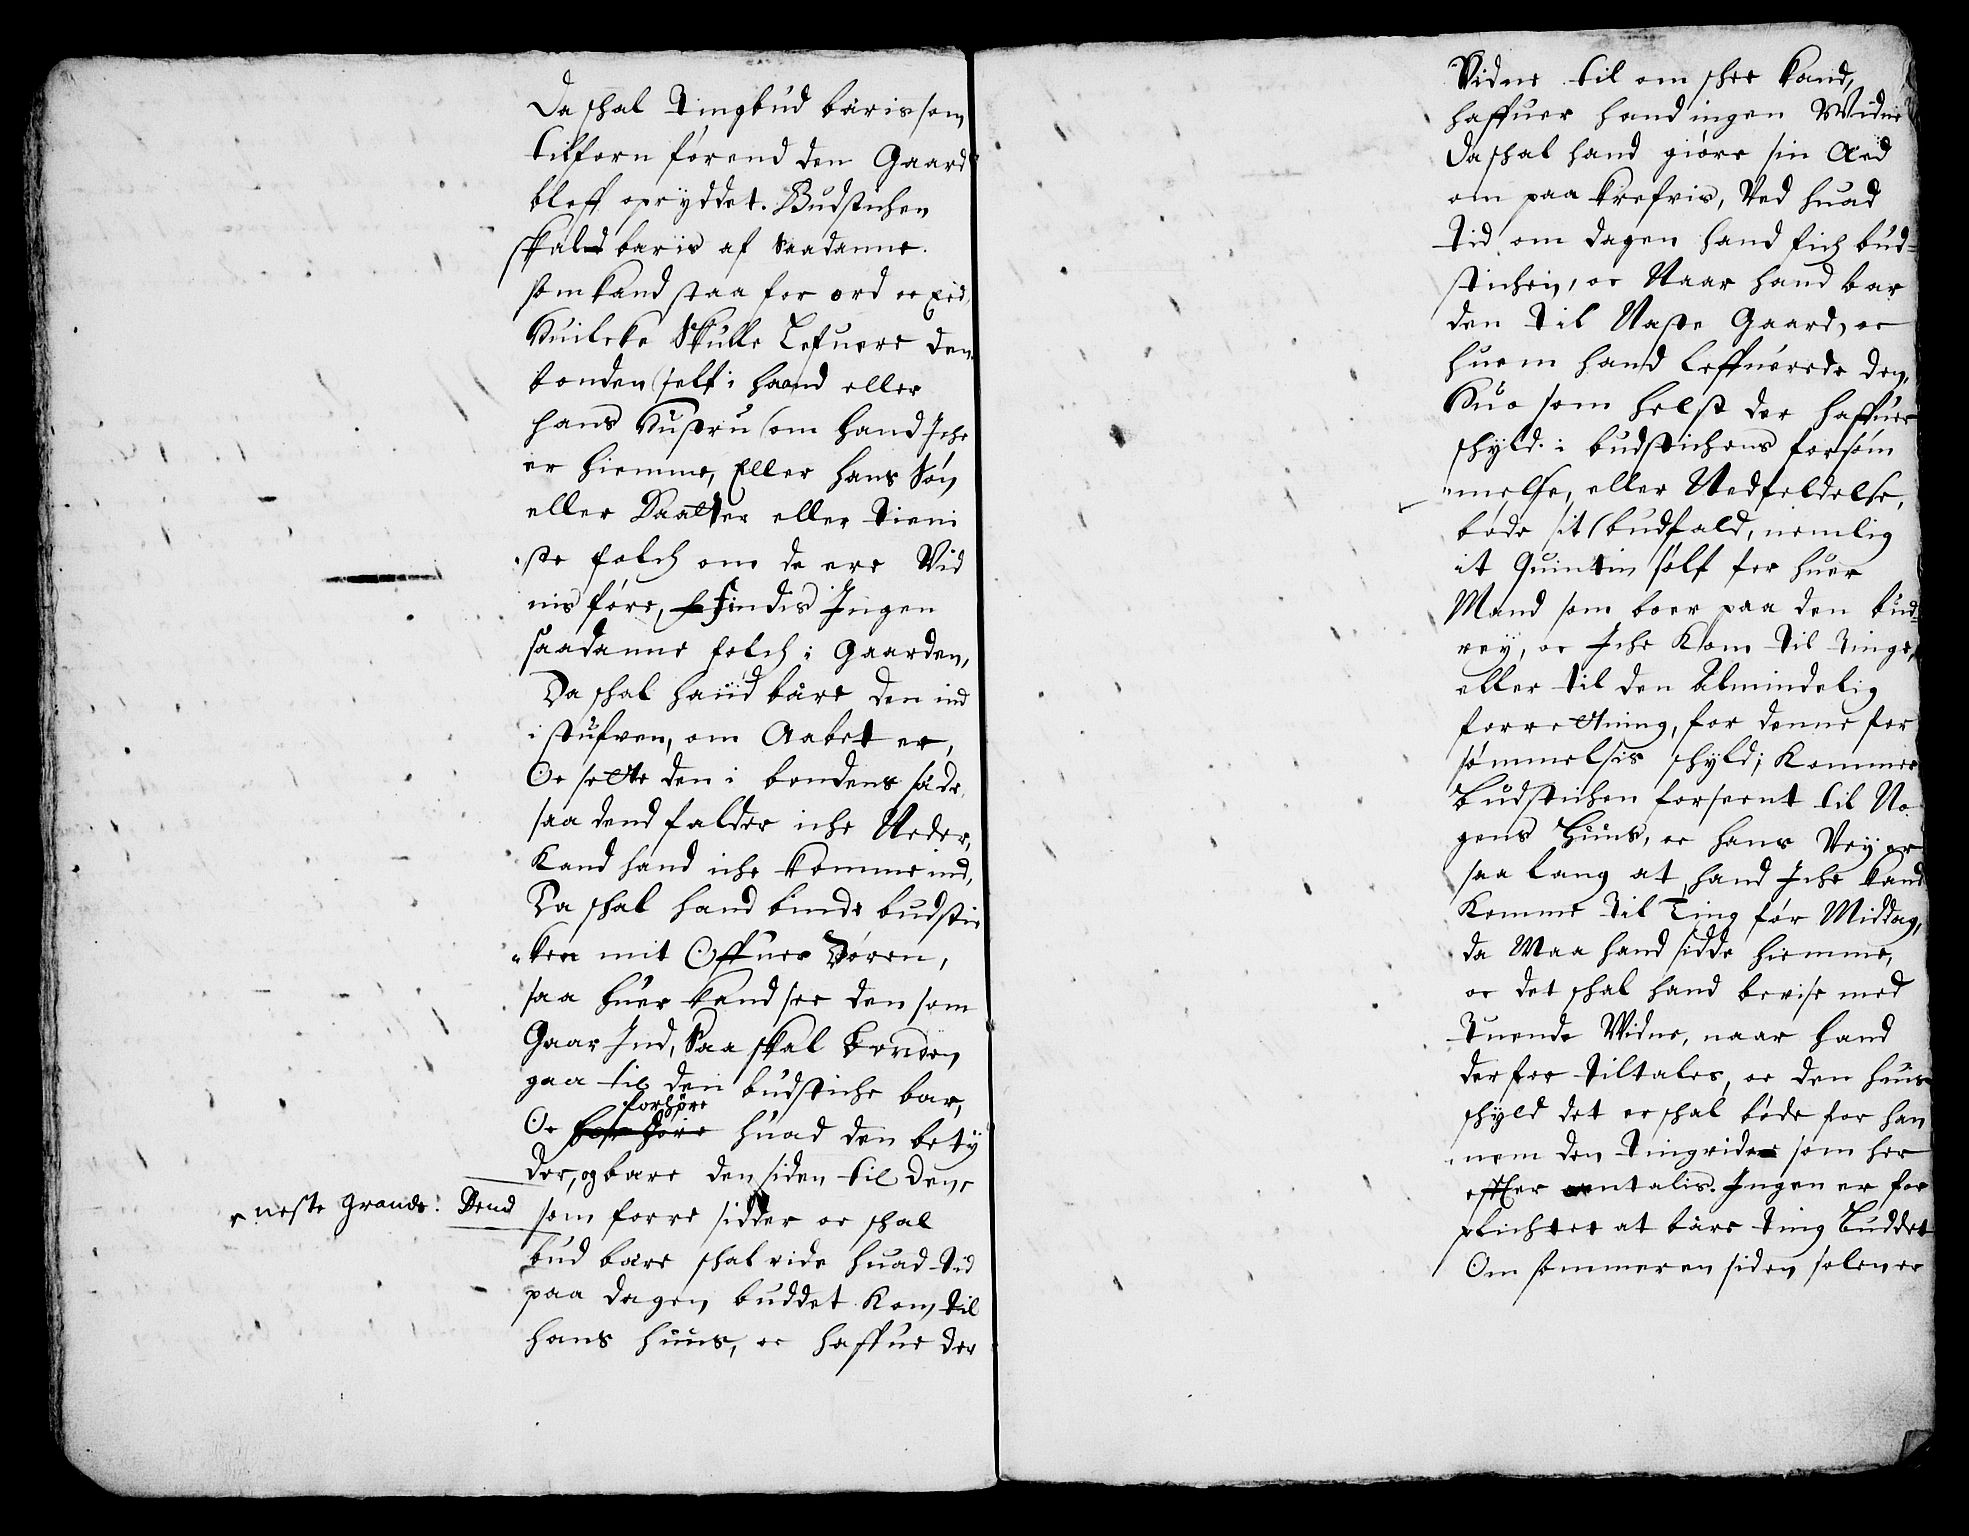 Da shal Tingbud bæris som
tilforn førend den Gaard
bleff opryddet. Budstichen
skal bæris af saadanne
som kand staa for ord oc Eed,
Huilcke Skulle Lefuere den
bonden self i haand eller
hans Hustru om hand Iche
er hiemme, Eller hans Søn
eller Daatter eller tieni
ste folch om de ere Vid
nis føre, findis Ingen
saadanne folch i Gaarden,
Da shal hand bære den ind
i stufven, om Aabet er,
Oc sette den i bondens sæde
saa dend falder iche Neder,
Kand hand iche komme ind,
Da shal hand binde budsti
ken mit Offuer Døren,
saa huer kand see den som
Gaar Ind, Saa skal bonden
gaa til den budstiche bar,
forhøre
Oc huad den bety
der, og bære den siden til den
neste grande: Dend
som forre sidder oc shal
bud bære shal vide huad tid
paa dagen buddet kom til
hans huus, oc haffue der
Vidne til om shee kand,
haffuer hand ingen Widne
Da shal hand giøre sin Aed
om paa krefvis, Ved huad
tid om dagen hand fich bud-
stichen, oc Naar hand bar
den til Næste Gaard, oc
huem hand leffuerede den,
Huo som helst der haffuer
shyld i budstichens forsøm
melse, eller Nedfeldelse,
bøde sit budfald, nemlig
it Quintin sølf for huer
Mand som boer paa den bud-
vey, oc Iche Kom til tinge,
eller til den Almindelig
forretning, for denne for
sømmelsis shyld; Kommer
Budstichen forseent til No
gens Huus, oc hans Vey er
saa lang at hand Iche kand
Komme til Ting før Middag,
da Maa hand sidde hiemme,
oc det shal hand bevise med
Tuende Widne, naar hand
derfor tiltales, oc den huis
shyld det er shal bøde for han
nem den Tingvide som her
effter omtalis. Ingen er for
plichtet at bære Ting Buddet
Om sommeren siden solen er